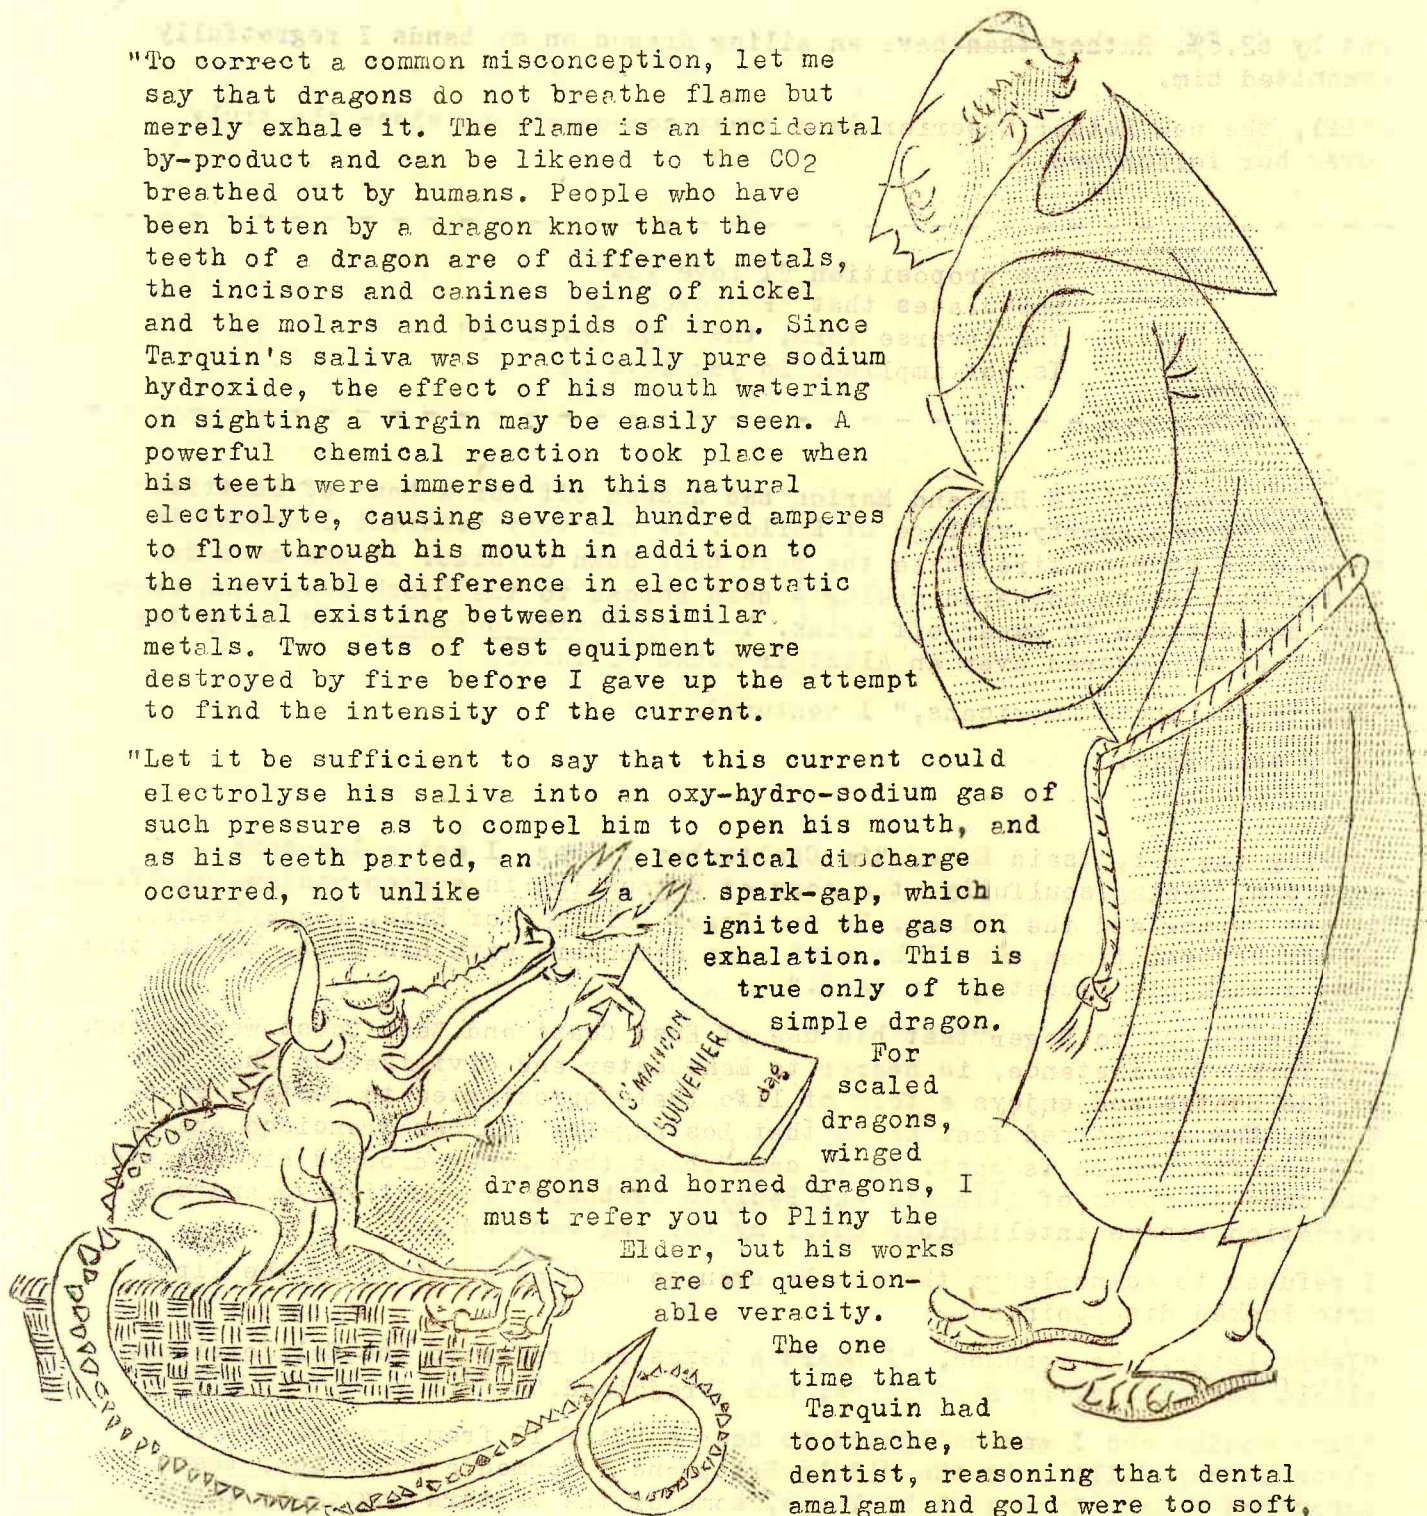 "To correct a common misconception, let me
say that dragons do not breathe flame but
merely exhale it. The flame is an incidental
by-product and can be likened to the CO2
breathed out by humans. People who have
been bitten by a dragon know that the
teeth of a dragon are of different metals,
the incisors and canines being of nickel
and the molars and bicuspids of iron. Since
Tarquin's saliva was practically pure sodium
hydroxide, the effect of his mouth watering
on sighting a virgin may be easily seen. A
powerful chemical reaction took place when
his teeth were immersed in this natural
electrolyte, causing several hundred amperes
to flow through his mouth in addition to
the inevitable difference in electrostatic
potential existing between dissimilar
metals. Two sets of test equipment were
destroyed by fire before I gave up the attempt
to find the intensity of the current.
"Let it be sufficient to say that this current could
electrolyse his saliva into an oxy-hydro-sodium gas of
such pressure as to compel him to open his mouth, and
as his teeth parted, an electrical discharge
occurred, not unlike a spark-gap, which
ignited the gas on
exhalation. This is
true only of the
simple dragon.
For
scaled
dragons,
winged
dragons and horned dragons, I
must refer you to Pliny the
Elder, but his works
are of question-
able veracity.
The one
time that
Tarquin had
toothache, the
dentist, reasoning that dental
amalgam and gold were too soft,
S'MANCON
SOUVENIER
dag.